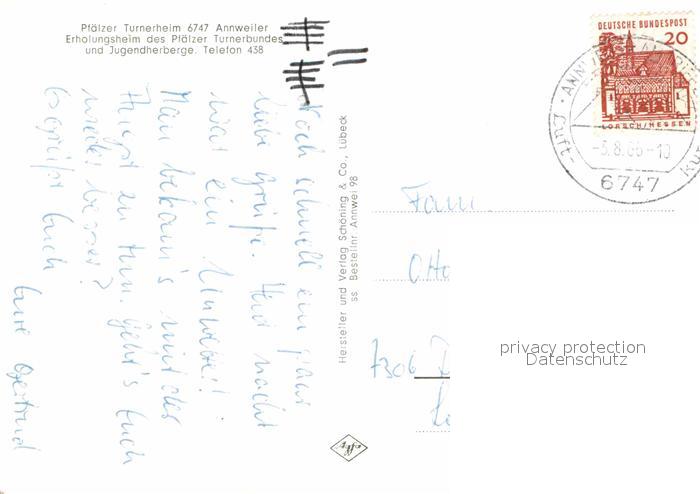 Pfälzer Turnerheim 6747 Annweiler
Erholungsheim des Pfälzer Turnerbundes
und Jugendherberge. Telefon 438
Noch schnell ein paar
liebe Grüße. Heut nacht
war ein Unwetter!
Man bekam's mit der
Angst zu tun. Geht's Euch
wieder besser?
Es grüßt Euch
Eure Gertrud
Hersteller und Verlag Schöning & Co., Lübeck
ss Bestellnr Annwei 98
DEUTSCHE BUNDESPOST
20
LORSCH/HESSEN
-3.8.66-10
6747
Fam.
Otto
7306
privacy protection
Datenschutz